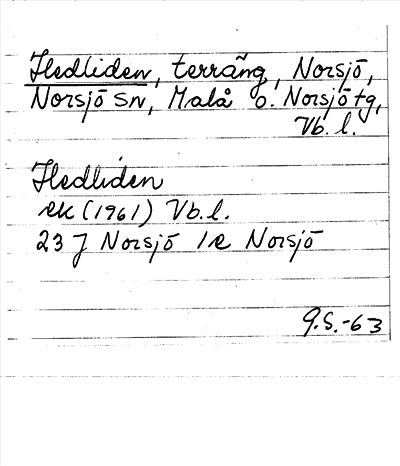 Hedliden, terräng, Norsjö,
Norsjö sn, Malå o. Norsjö tg,
Vb. l.
Hedliden
ek (1961) Vb. l.
23 J Norsjö 1e Norsjö
G.S.-63